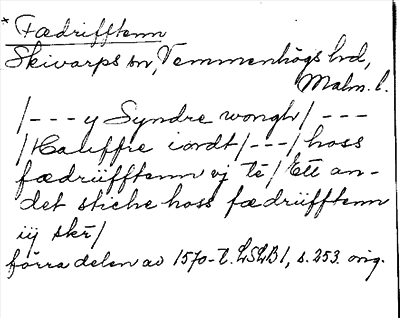 * Fædrifftenn
Skivarps sn, Vemmenhögs hd,
Malm. l.
/--- y Syndre wongh/ ---
/Haluffre iordt/---/ hoss
fædrüfftenn vj te/ Ett an-
det stiche hoss fædrüfftenn
iij skr/
förra delen av 1570-t. LSLB 1, s. 253. orig.